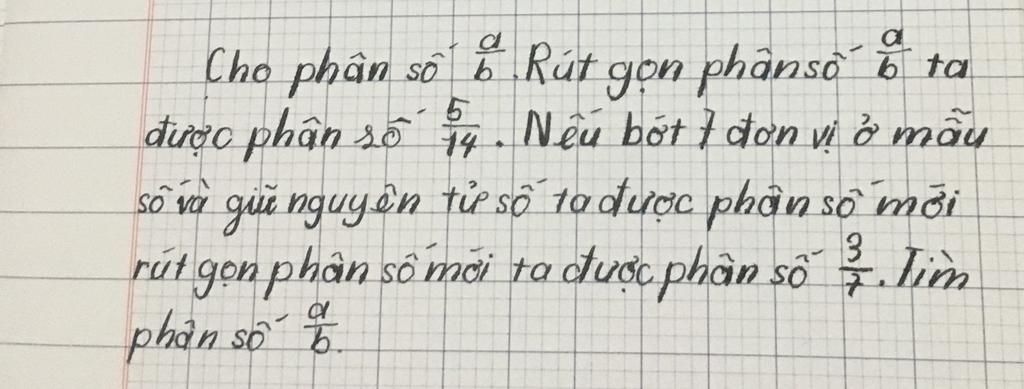 Cho phân số a/b. Rút gọn phân số a/b ta
được phân số 5/14. Nếu bớt 7 đơn vị ở mẫu
số và giữ nguyên tử số ta được phân số mới
rút gọn phân số mới ta được phân số 3/7. Tìm
phân số a/b.